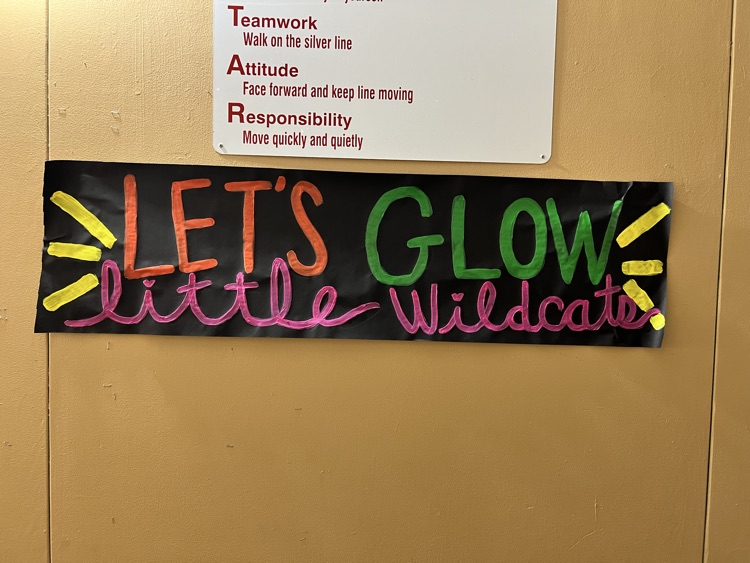 Teamwork
Walk on the silver line
Attitude
Face forward and keep line moving
Responsibility
Move quickly and quietly
LET'S GLOW
little Wildcats